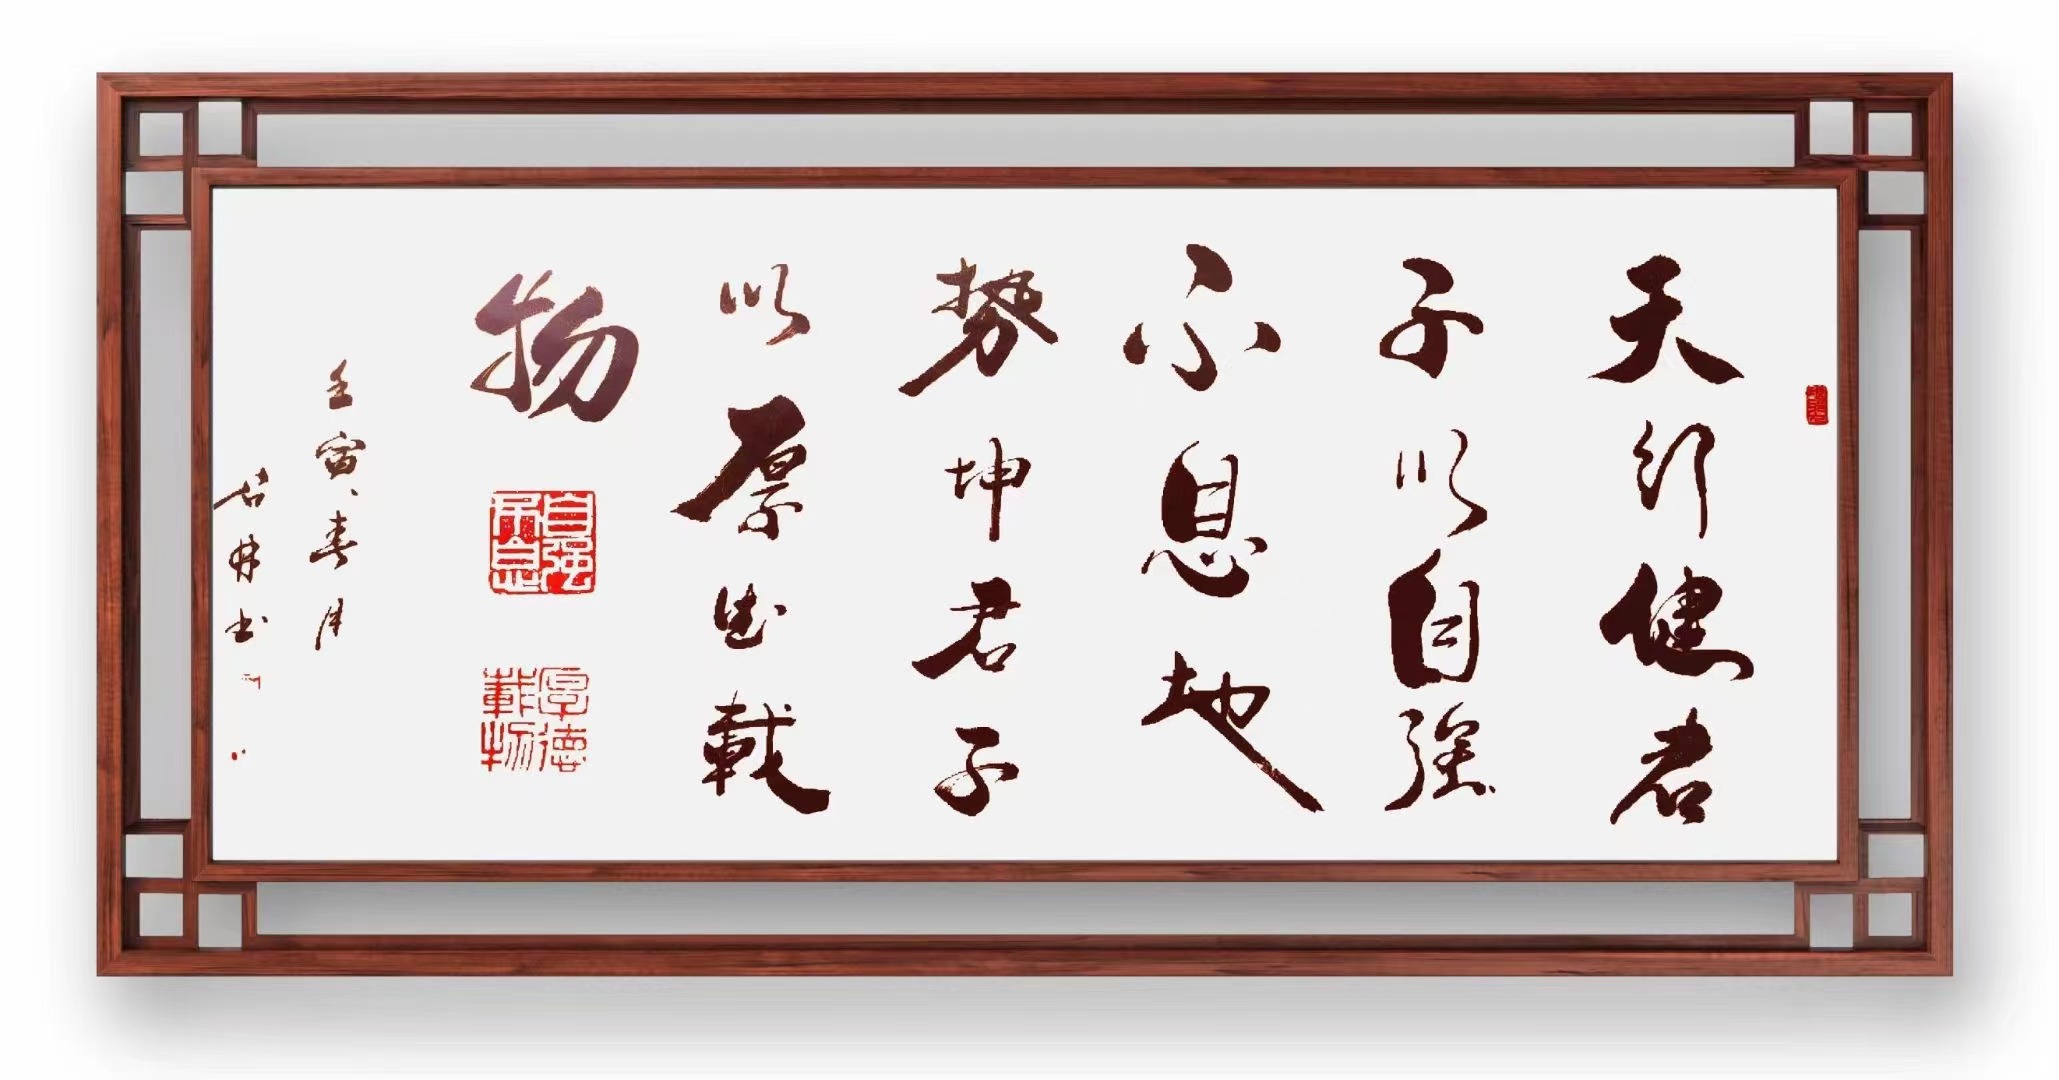 天行健君
子以自強
不息地
势坤君子
以厚德載
物
自強不息
厚德載物
壬寅春月
书